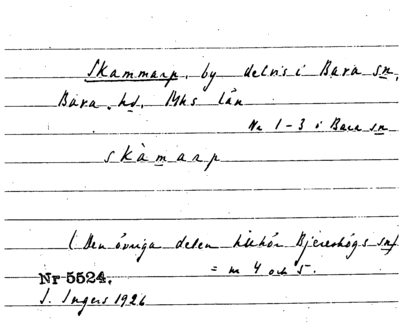 Skammarp, by delvis i Bara sn,
Bara hd. Mhs län
Nr 1-3 i Bara sn
skàmarp
(Den övriga delen tillhör Bjereshögs sn)
= nr 4 och 5.
Nr 5524.
I. Ingers 1926